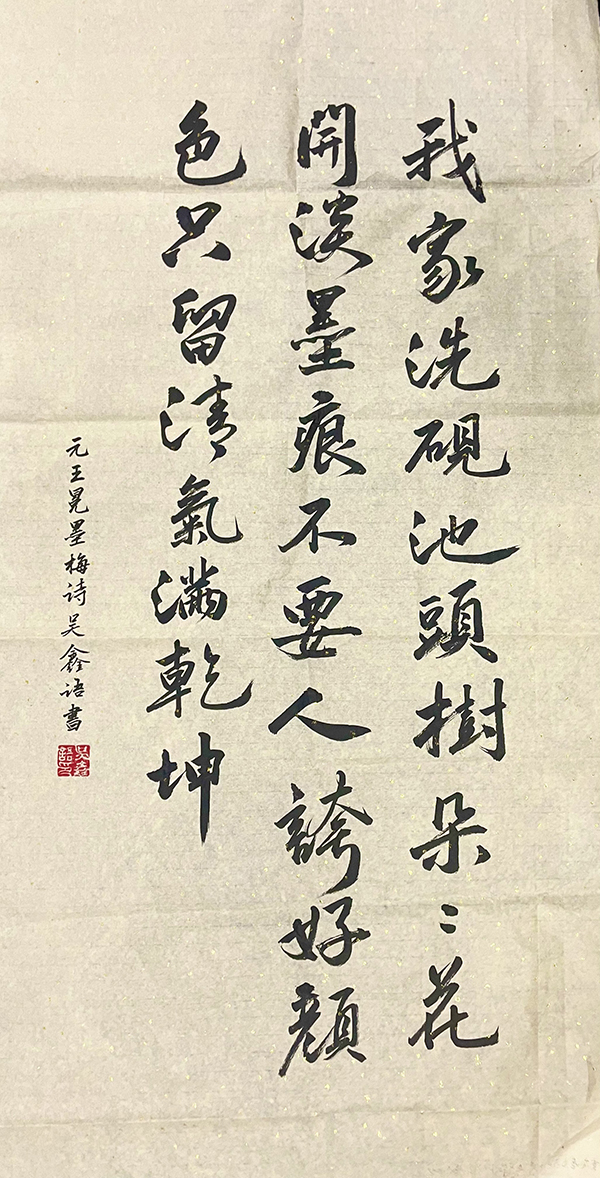 我家洗硯池頭樹朵〻花
開淡墨痕不要人誇好顏
色只留清氣滿乾坤
元王冕墨梅诗吴鑫语書